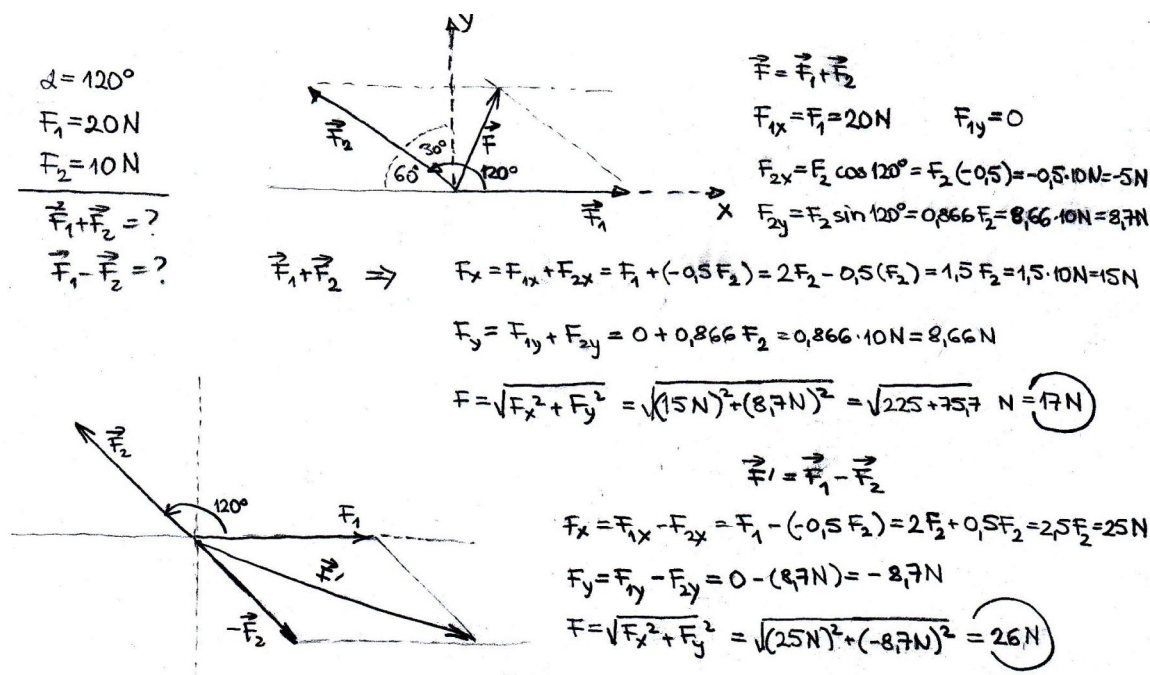 α = 120°
F₁ = 20N
F₂ = 10N
F⃗₁+F⃗₂ = ?
F⃗₁-F⃗₂ = ?
y
F⃗₂
30°
60°
F⃗
120°
F⃗₁
x
F⃗ = F⃗₁+F⃗₂
F₁ₓ=F₁=20N F₁y=0
F₂ₓ=F₂ cos 120° = F₂(-0,5)=-0,5·10N=-5N
F₂y=F₂ sin 120°=0,866 F₂= 8,66·10N=8,7N
F⃗₁+F⃗₂ ⇒ Fₓ = F₁ₓ+F₂ₓ = F₁+(-0,5F₂) = 2F₂-0,5(F₂)=1,5F₂=1,5·10N=15N
Fy = F₁y+F₂y = 0+0,866 F₂ =0,866·10N=8,66N
F=√(Fₓ²+Fy²) = √((15N)²+(8,7N)²) = √(225+75,7) N = 17N
F⃗' = F⃗₁-F⃗₂
Fₓ=F₁ₓ-F₂ₓ = F₁-(-0,5F₂)=2F₂+0,5F₂=2,5F₂=25N
Fy=F₁y-F₂y = 0-(8,7N)= -8,7N
F=√(Fₓ²+Fy²) = √((25N)²+(-8,7N)²) = 26N
F⃗₂
120°
F₁
F⃗'
-F⃗₂